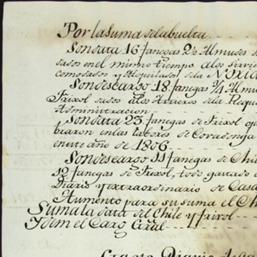 Por la suma de la buelta
Son data 16 fanegas 2½ Almudes de
dados en el mismo tiempo a los Sirvie
comodados y Alquilados de la
Son descargo 18 fanegas ¾ Almu
Frixol dados a los Arrieros de la Requ
Administracion
Son data 23 fanegas de Frixol que
biaron en las labores de
en este año de 1806
Son descargo 11 fanegas de Chile
12 fanegas de Frixol, todo gastado
Diario y extraordinario de Casa
Aumento para su suma el C
Suma la data del Chile y frixol
Idem el Cargo Anual
Diario